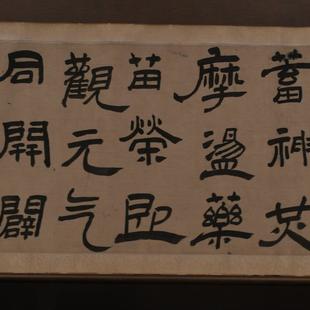 蓄神炗
摩盪藥
苗榮即
觀元气
同開闢